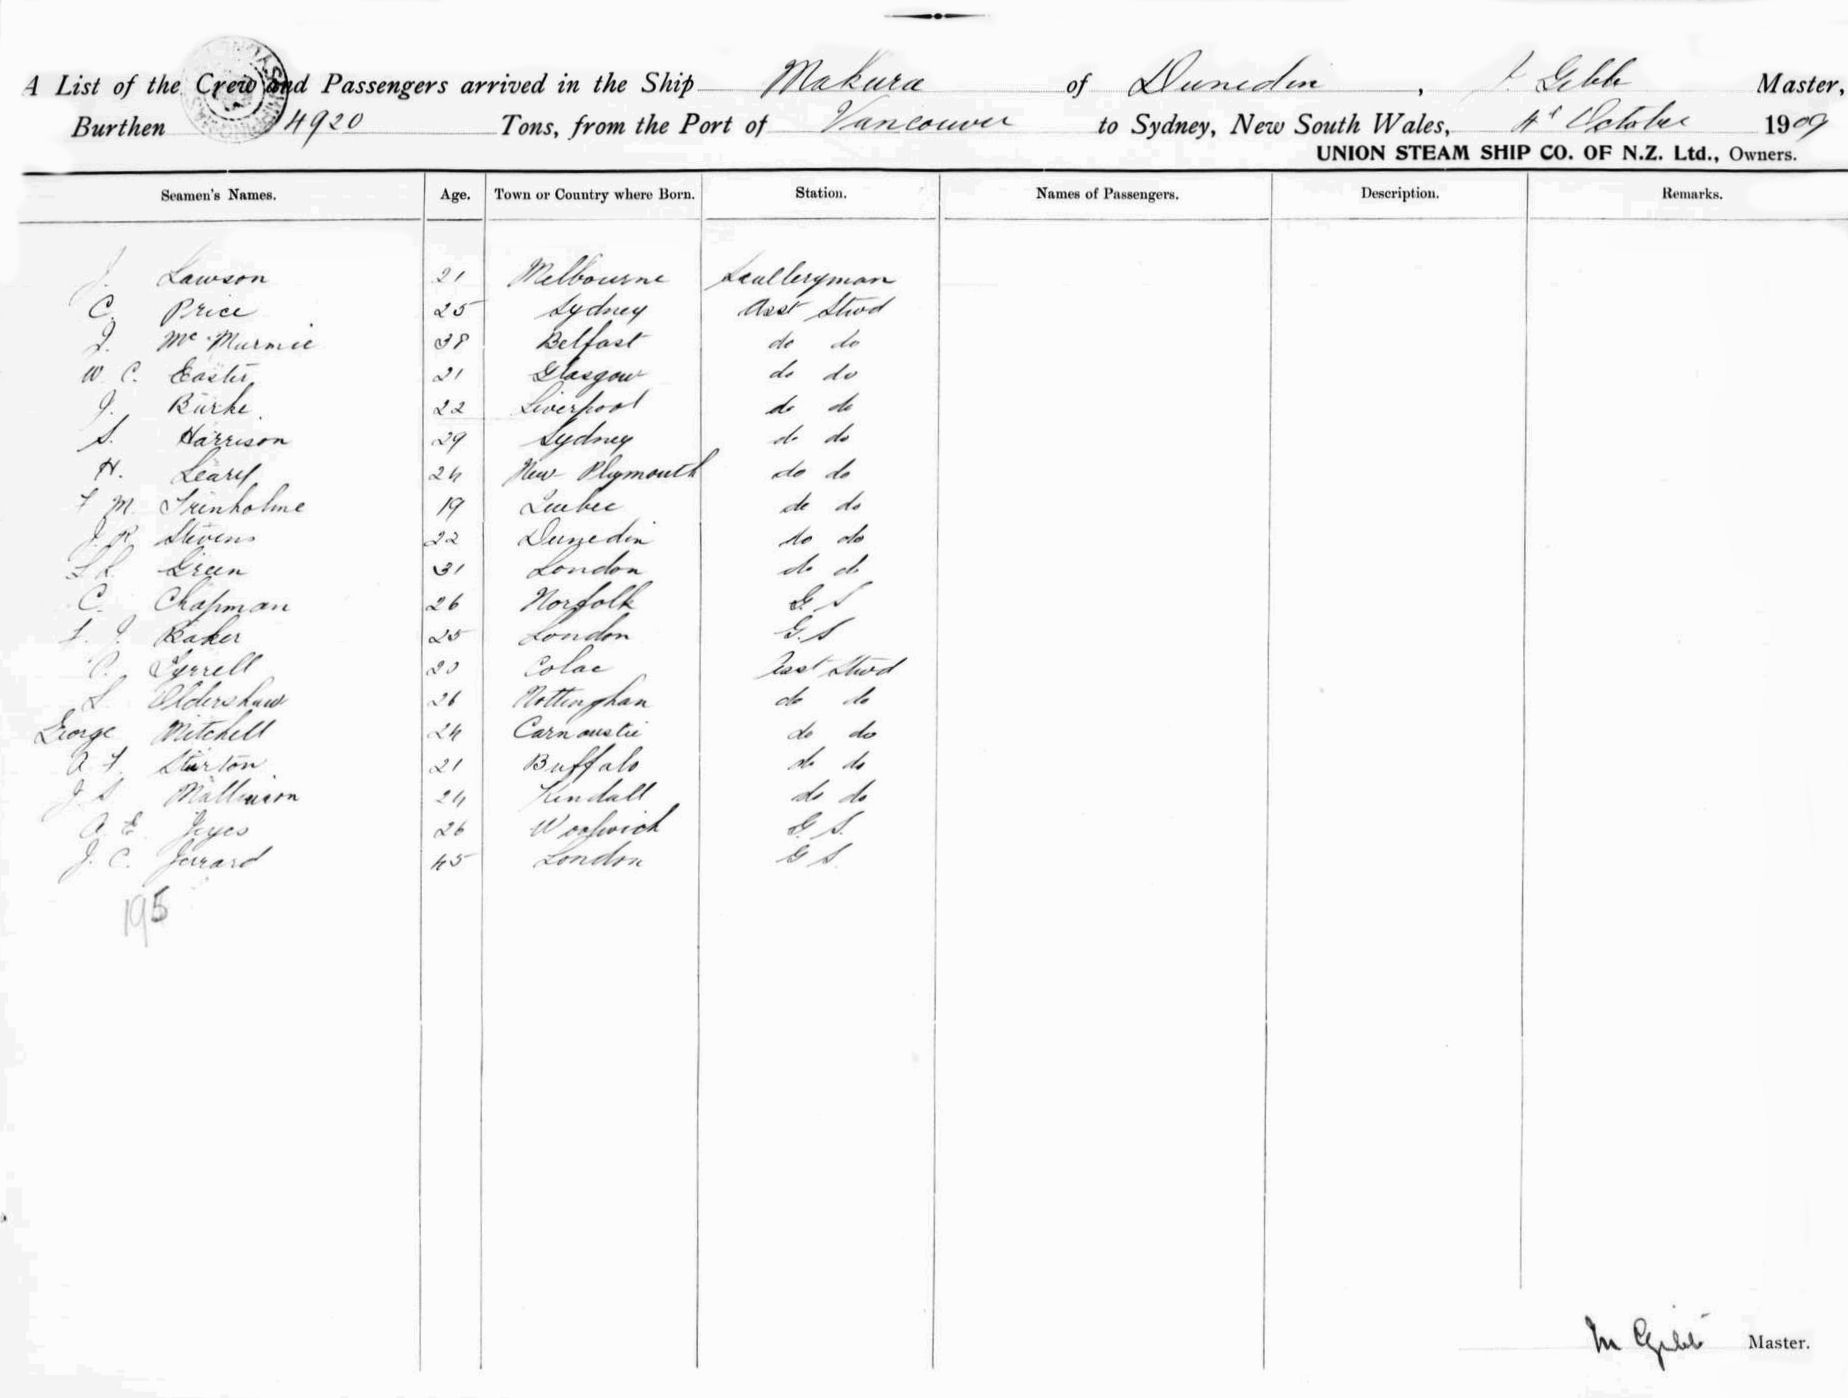 A List of the Crew and Passengers arrived in the Ship Makura of Dunedin, J. Gibb Master,
Burthen 4920 Tons, from the Port of Vancouver to Sydney, New South Wales, 4th October 1909
UNION STEAM SHIP CO. OF N.Z. Ltd., Owners.
Seamen's Names. Age. Town or Country where Born. Station. Names of Passengers. Description. Remarks.
J. Lawson 21 Melbourne Sculleryman
C. Price 25 Sydney Asst Stwd
J. Mc Murmie 38 Belfast do do
W. C. Easter 21 Glasgow do do
J. Burke 22 Liverpool do do
S. Harrison 29 Sydney do do
H. Leary 24 New Plymouth do do
F M Trenholme 19 Quebec do do
J. R. Stevens 22 Dunedin do do
Green 31 London do do
C. Chapman 26 Norfolk G. S
F. J. Baker 25 London G. S
C. Tyrrell 20 Colac Asst Stwd
S. Oldershaw 26 Nottingham do do
George Mitchell 24 Carnoustie do do
A F. Sturton 21 Buffalo do do
J. S. Mallinson 24 Kendall do do
A. E. Jeyes 26 Woolwich G. S.
J. C. Jerrard 45 London G S.
195
Gibb Master.